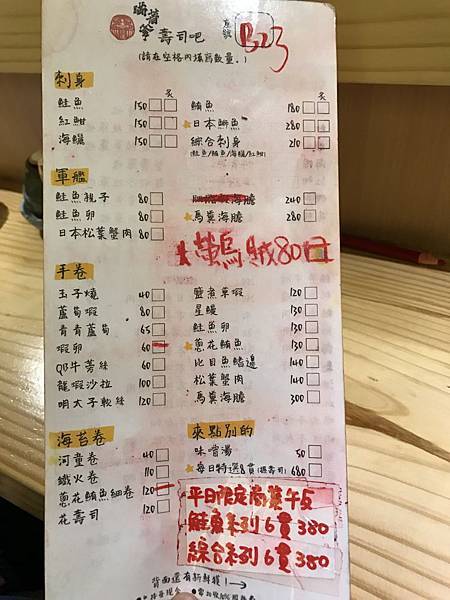 壽司吧
B23
(請在空格內填寫數量。)
刺身
炙
炙
鮭魚 150
紅魽 150
海鱺 150
鮪魚 180
日本鰤魚 280
綜合刺身 210
(鮭魚/鮪魚/海鱺/紅魽)
軍艦
鮭魚親子 80
鮭魚卵 80
日本松葉蟹肉 80
海膽 240
馬糞海膽 280
螢烏賊80
手卷
玉子燒 40
蘆筍蝦 80
青青蘆筍 65
蝦卵 60
QB牛蒡絲 60
龍蝦沙拉 100
明太子軟絲 120
鹽煮草蝦 120
星鰻 130
鮭魚卵 130
蔥花鮪魚 130
比目魚鰭邊 140
松葉蟹肉 140
馬糞海膽 300
海苔卷
河童卷 40
鐵火卷 110
蔥花鮪魚細卷 120
花壽司 120
來點別的
味噌湯 50
每日特選8貫(握壽司) 680
平日限定商業午餐
鮭魚系列6貫380
綜合系列6貫380
背面還有新鮮貨!→